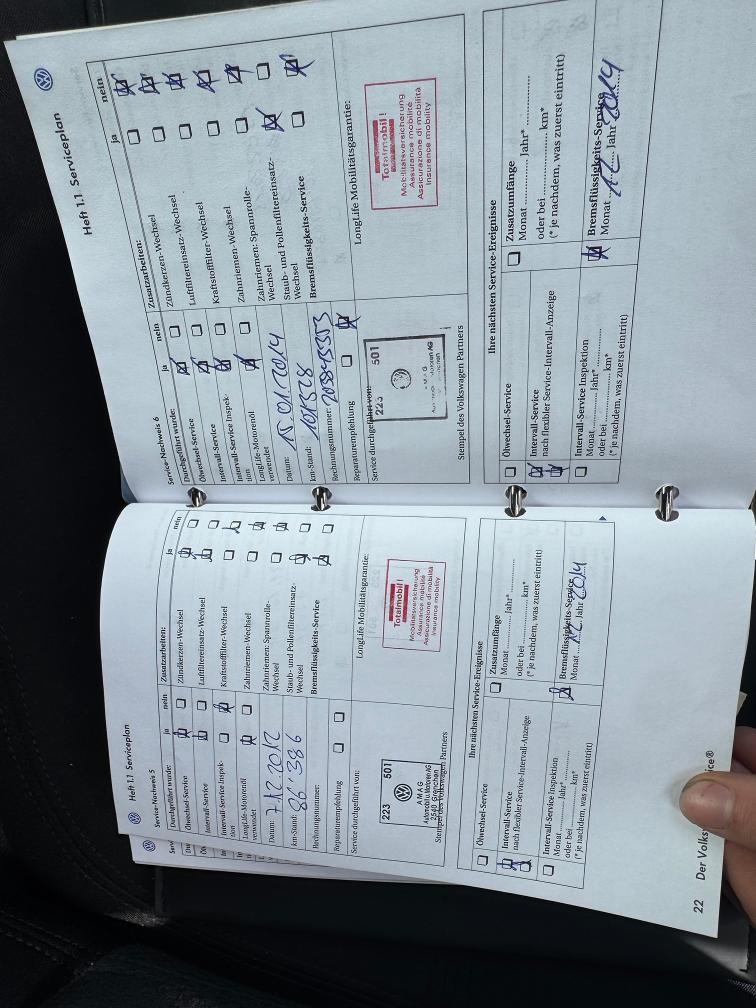 Heft 1.1 Serviceplan
Service-Nachweis 5
Durchgeführt wurde:
ja
nein
Ölwechsel-Service
Intervall-Service
Intervall-Service Inspek-
tion
LongLife-Motorenöl
verwendet
Datum: 7.12.2012
km-Stand: 86'386
Rechnungsnummer:
Reparaturempfehlung
Zusatzarbeiten:
ja
nein
Zündkerzen-Wechsel
Luftfiltereinsatz-Wechsel
Kraftstoffilter-Wechsel
Zahnriemen-Wechsel
Zahnriemen: Spannrolle-
Wechsel
Staub- und Pollenfiltereinsatz-
Wechsel
Bremsflüssigkeits-Service
Service durchgeführt von:
223 501
AMAG
Automobil- u. Motoren AG
2540 Grenchen
Stempel des Volkswagen Partners
LongLife Mobilitätsgarantie:
Totalmobil!
Mobilitätsversicherung
Assurance mobilité
Assicurazione di mobilità
Insurance mobility
Ihre nächsten Service-Ereignisse
Ölwechsel-Service
Intervall-Service
nach flexibler Service-Intervall-Anzeige
Intervall-Service Inspektion
Monat ............ Jahr* ............
oder bei ............ km*
(* je nachdem, was zuerst eintritt)
Zusatzumfänge
Monat ............ Jahr* ............
oder bei ............ km*
(* je nachdem, was zuerst eintritt)
Bremsflüssigkeits-Service
Monat 12 Jahr 2014
22 Der Volks
ice®
Heft 1.1 Serviceplan
Service-Nachweis 6
Durchgeführt wurde:
ja
nein
Ölwechsel-Service
Intervall-Service
Intervall-Service Inspek-
tion
LongLife-Motorenöl
verwendet
Datum: 15.01.2014
km-Stand: 101328
Rechnungsnummer:
Reparaturempfehlung
Zusatzarbeiten:
ja
nein
Zündkerzen-Wechsel
Luftfiltereinsatz-Wechsel
Kraftstoffilter-Wechsel
Zahnriemen-Wechsel
Zahnriemen: Spannrolle-
Wechsel
Staub- und Pollenfiltereinsatz-
Wechsel
Bremsflüssigkeits-Service
Service durchgeführt von:
223 501
Motoren AG
Stempel des Volkswagen Partners
LongLife Mobilitätsgarantie:
Totalmobil!
Mobilitätsversicherung
Assurance mobilité
Assicurazione di mobilità
Insurance mobility
Ihre nächsten Service-Ereignisse
Ölwechsel-Service
Intervall-Service
nach flexibler Service-Intervall-Anzeige
Intervall-Service Inspektion
Monat ............ Jahr* ............
oder bei ............ km*
(* je nachdem, was zuerst eintritt)
Zusatzumfänge
Monat ............ Jahr* ............
oder bei ............ km*
(* je nachdem, was zuerst eintritt)
Bremsflüssigkeits-Service
Monat 12 Jahr 2014